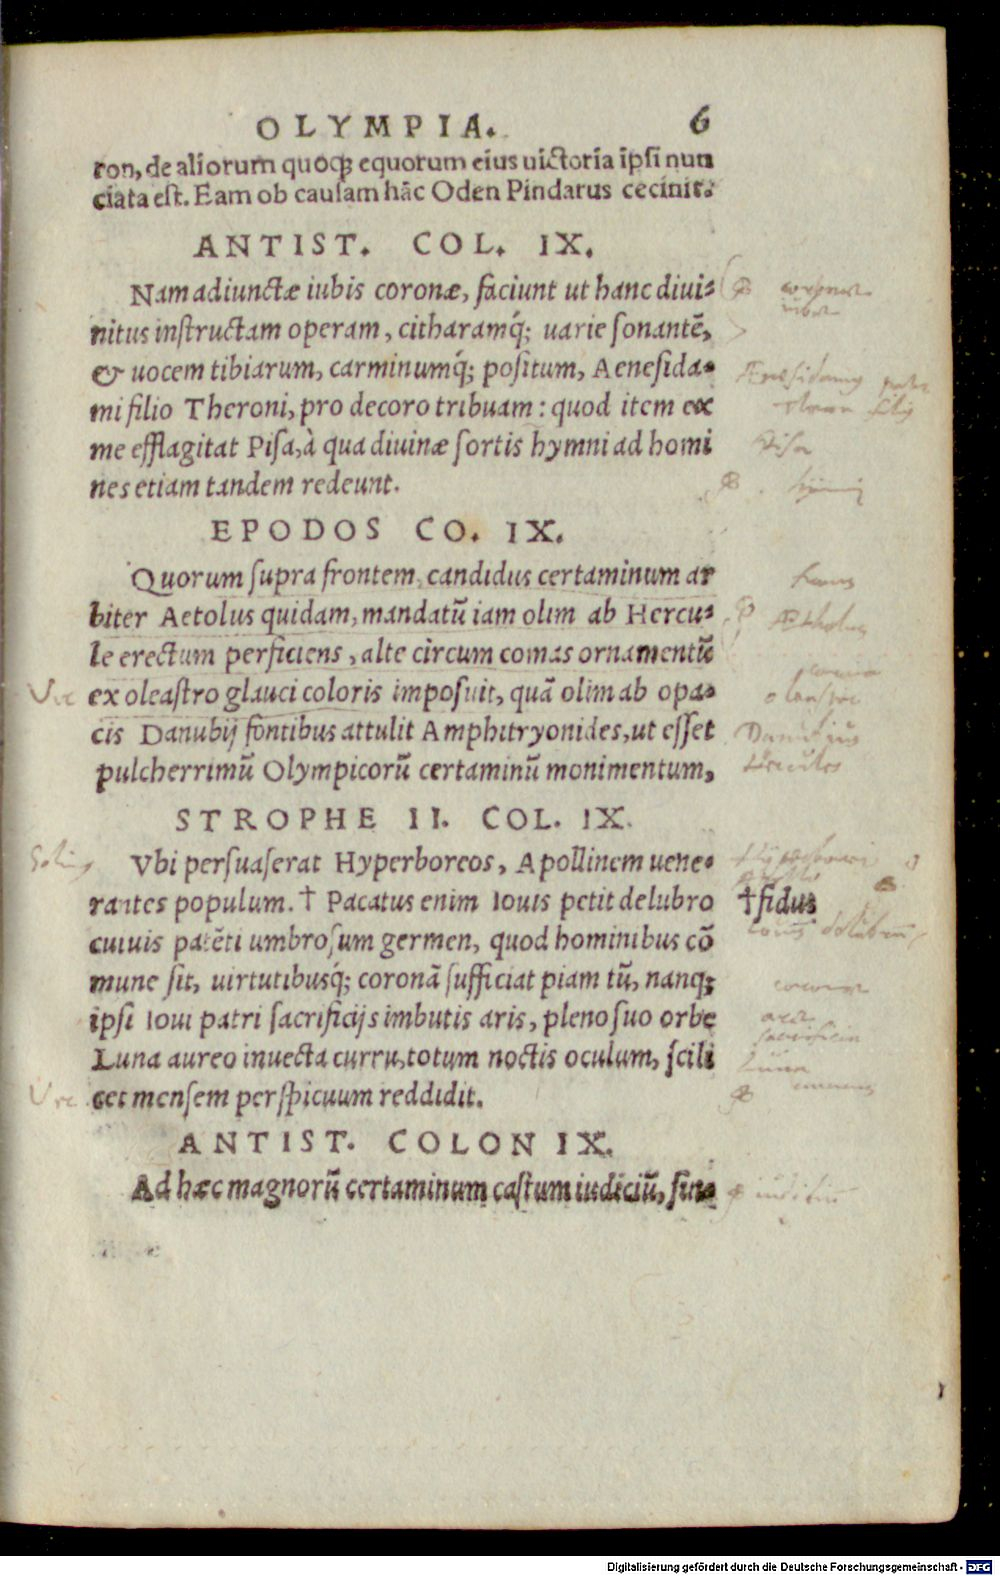 OLYMPIA. 6
ron, de aliorum quoq; equorum eius uictoria ipsi nun
ciata est. Eam ob causam hāc Oden Pindarus cecinit.
ANTIST. COL. IX.
Nam adiunctæ iubis coronæ, faciunt ut hanc diui-
nitus instructam operam, citharamq́; uarie sonantē,
& uocem tibiarum, carminumq́; positum, Aenesida-
mi filio Theroni, pro decoro tribuam: quod item ex
me efflagitat Pisa, à qua diuinæ sortis hymni ad homi
nes etiam tandem redeunt.
EPODOS CO. IX.
Quorum supra frontem, candidus certaminum ar
biter Aetolus quidam, mandatū iam olim ab Hercu-
le erectum perficiens, alte circum comas ornamentū
ex oleastro glauci coloris imposuit, quā olim ab opa-
cis Danubij fontibus attulit Amphitryonides, ut esset
pulcherrimū Olympicorū certaminū monimentum,
STROPHE II. COL. IX.
Vbi persuaserat Hyperboreos, Apollinem uene-
rantes populum. † Pacatus enim Iouis petit delubro †fidus
cuiuis patēti umbrosum germen, quod hominibus cō
mune sit, uirtutibusq́; coronā sufficiat piam tū, nanq;
ipsi Ioui patri sacrificijs imbutis aris, pleno suo orbe
Luna aureo inuecta curru, totum noctis oculum, scili
cet mensem perspicuum reddidit.
ANTIST. COLON IX.
Ad hæc magnorū certaminum castum iudiciū, simul
Pisa
Luna
Digitalisierung gefördert durch die Deutsche Forschungsgemeinschaft - DFG